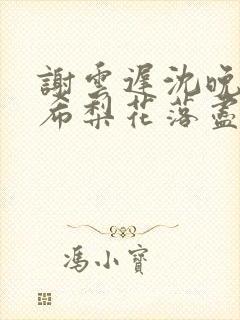 謝雲遲沈晚
希梨花落盡
馮小寶